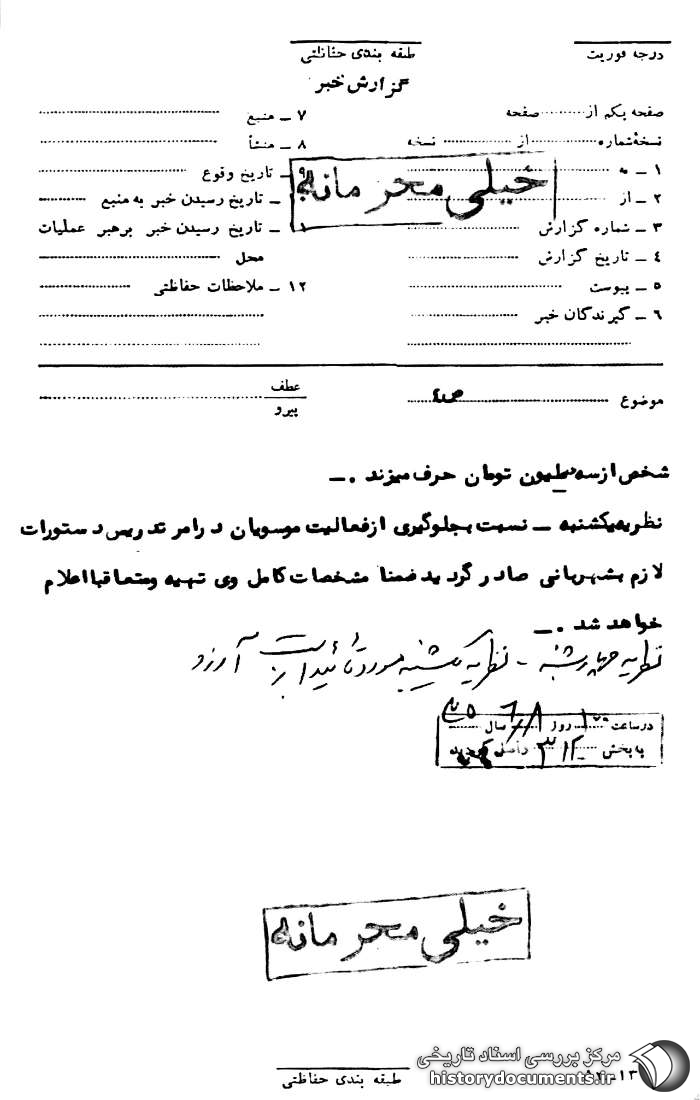 درجه فوریت
طبقه بندی حفاظتی
گزارش خبر
صفحه یکم از ............ صفحه
نسخه شماره ............ از ............ نسخه
۱ ـ به
۲ ـ از
۳ ـ شماره گزارش
۴ ـ تاریخ گزارش
۵ ـ پیوست
۶ ـ گیرندگان خبر
۷ ـ منبع
۸ ـ منشأ
۹ ـ تاریخ وقوع
ـ تاریخ رسیدن خبر به منبع
ـ تاریخ رسیدن خبر برهبر عملیات
محل
۱۲ ـ ملاحظات حفاظتی
خیلی محرمانه
موضوع
عطف
پیرو
شخص از سه ملیون تومان حرف میزند . ـ
نظریه یکشنبه ـ نسبت بجلوگیری از فعالیت موسویان در امر تدریس دستورات
لازم بشهربانی صادر گردید ضمنا مشخصات کامل وی تهیه ومتعاقبا اعلام
خواهد شد . ـ
نظریه چهارشنبه - نظریه یکشنبه مورد تأیید است آرزو
در ساعت ۱۰ روز ۶/۸ سال
به بخش ۳۱۲ واصل گردید
خیلی محرمانه
طبقه بندی حفاظتی
مرکز بررسی اسناد تاریخی
historydocuments.ir